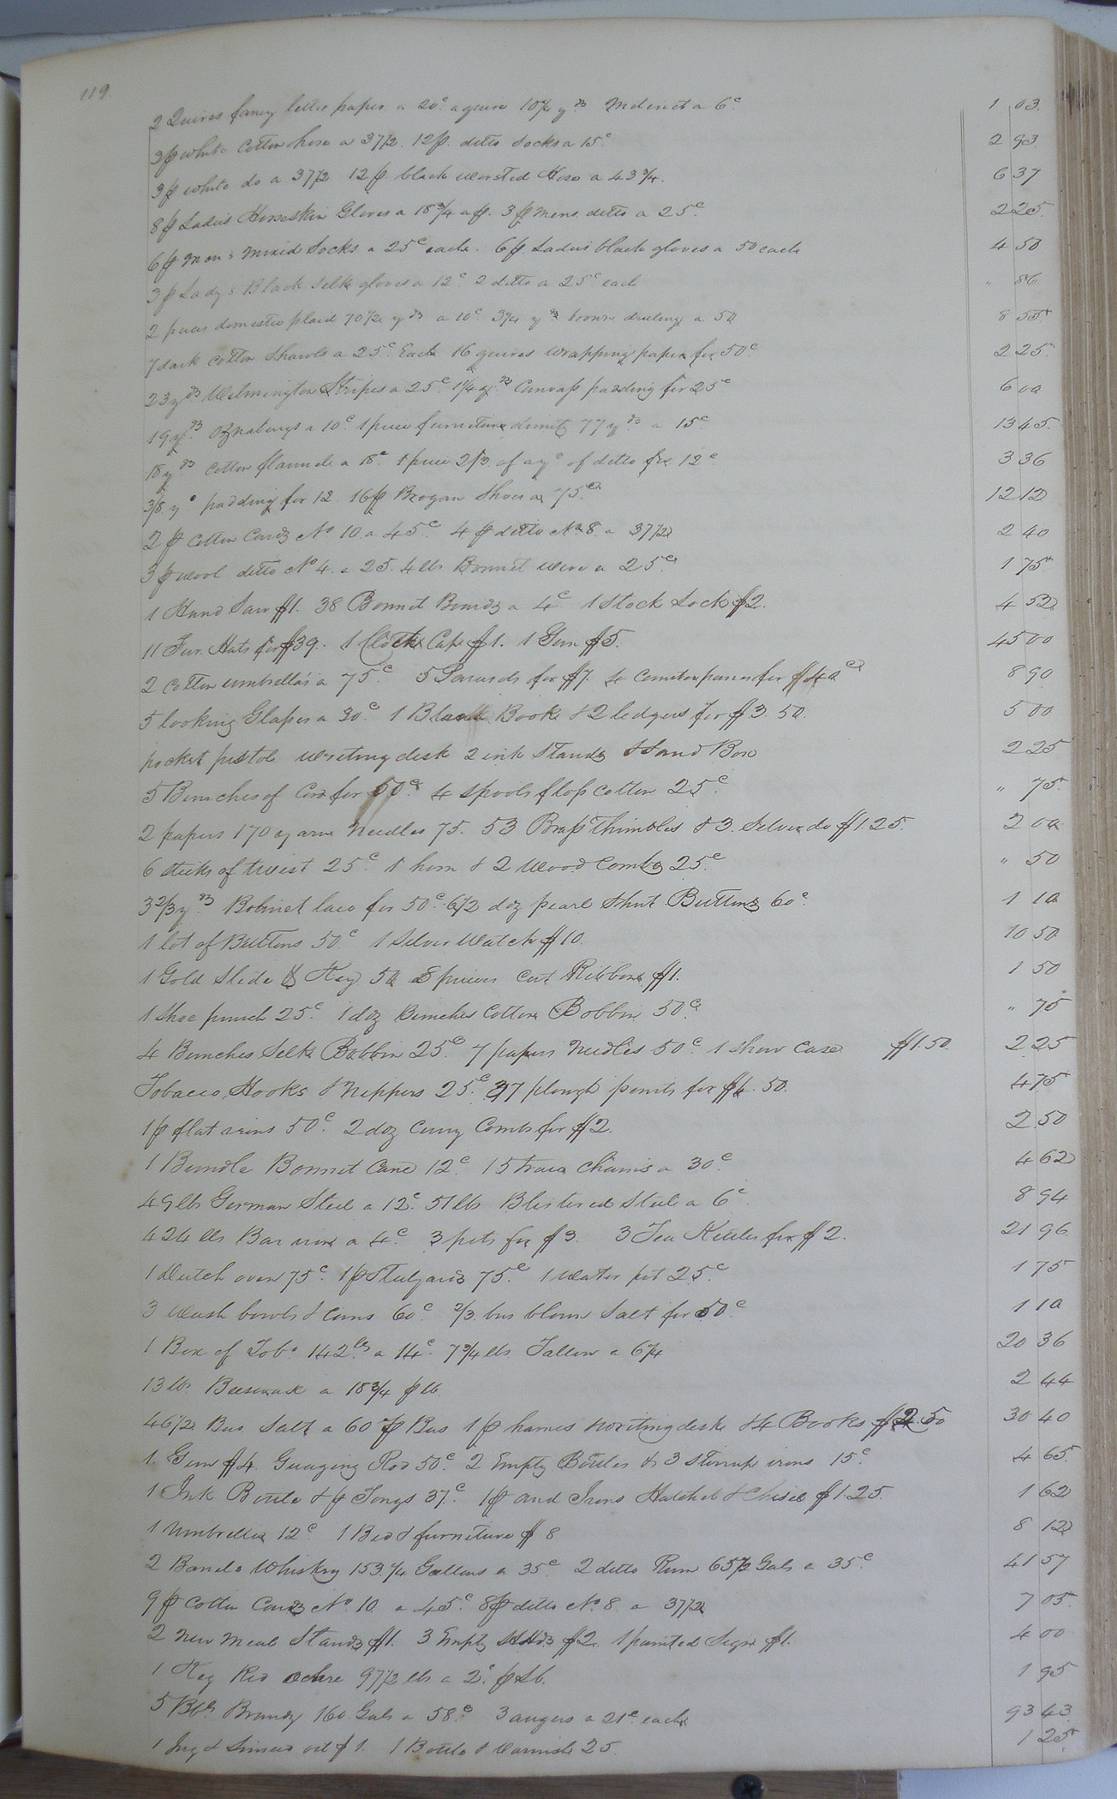 119
2 Quires fancy letter paper a 20c a quire 10½ yds Inderect a 6c 1 03
3 p white Cotton hose a 37½ 12 p. ditto Socks a 15c 2 93
3 p white do a 37½ 12 p black worsted Hose a 43¾. 6 37
8 p Ladies Horseskin Gloves a 18¾ a p. 3 p mens ditto a 25c 2 25
6 p Man's mixed Socks a 25c each. 6 p Ladies black gloves a 50 each 4 50
3 p Lady's Black Silk gloves a 12c 2 ditto a 25c each " 86
2 pieces domestic plaid 70½ yds a 10c 3¾ yds brown drilling a 50 8 55
7 dark Cotton Shawls a 25c Each 16 quires wrapping paper for 50c 2 25
23 yds Wilmington Stripes a 25c 1¼ yds Canvass padding for 25c 6 00
19 yds Oznaburgs a 10c 1 piece furniture dimity 77 yds a 15c 13 45
18 yds Cotton flannels a 18c 1 piece 2/3 of a yd of ditto for 12c 3 36
3/8 yd padding for 12 16 p Brogan Shoes a 75c 12 12
2 p Cotton Cards No 10 a 45c 4 p ditto No 8 a 37½ 2 40
3 p wool ditto No 4. a 25. 4 lbs Bonnet wire a 25c 1 75
1 Hand Saw $1. 38 Bonnet Boards a 4c 1 Stock Lock $2. 4 52
11 Fur Hats for $39. 1 Cloth Cap $1. 1 Gun $5. 45 00
2 Cotton umbrella's a 75c 5 Parasols for $7 4 for 8 90
5 looking Glasses a 30c 1 Blank Book & 2 ledgers for $3.50. 5 00
pocket pistol writing desk 2 ink Stands & Sand Box 2 25
5 Bunches of Cord for 50c 4 Spools floss Cotton 25c " 75
2 papers 170 yarn Needles 75. 53 Brass Thimbles & 3. Silver do $1.25. 2 00
6 sticks of twist 25c 1 horn & 2 Wood Combs 25c " 50
3 2/3 yds Bobinet lace for 50c 6½ doz pearl Shirt Buttons 60c 1 10
1 lot of Buttons 50c 1 Silver Watch $10. 10 50
1 Gold Slide & Key 50 8 pieces Cut Ribbons $1. 1 50
1 Shoe punch 25c 1 doz Bunches Cotton Bobbin 50c " 75
4 Bunches Silk Bobbin 25c 7 papers Needles 50c 1 Show Case $1.50. 2 25
Tobacco, Hooks & Nippers 25c 37 plough points for $4.50. 4 75
1 p flat irons 50c 2 doz Curry Combs for $2. 2 50
1 Bundle Bonnet Cane 12c 15 trace Chains a 30c 4 62
49 lbs German Steel a 12c 51 lbs Blistered Steel a 6c 8 94
424 lbs Bar iron a 4c 3 pots for $3. 3 Tea Kettles for $2. 21 96
1 Dutch oven 75c 1 p Stulyards 75c 1 Water pot 25c 1 75
3 Wash bowls & Cans 60c 2/3 bus blown Salt for 50c 1 10
1 Box of Tobo 142 lbs a 14c 7¾ lbs Tallow a 6¼ 20 36
13 lbs Beeswax a 18¾ p lb. 2 44
46½ Bus Salt a 60 p Bus 1 p hames writing desk & 4 Books $2.50 30 40
1 Gun $4 Guaging Rod 50c 2 Empty Bottles & 3 Stirrup irons 15c 4 65
1 Ink Bottle & p Tongs 37c 1 p and Irons Hatchet & Chisel $1.25. 1 62
1 Umbrella 12c 1 Bed & furniture $8 8 12
2 Barrels Whiskey 153¼ Gallons a 35c 2 ditto Rum 65½ Gals a 35c 41 57
9 p Cotton Cards No 10 a 45c 8 p ditto No 8 a 37½ 7 05
2 New Meal Stands $1. 3 Empty Hhds $2. 1 painted Sign $1. 4 00
1 Keg Red ochre 97½ lbs a 2c p Lb. 1 95
5 Bbls Brandy 160 Gals a 58c 3 augers a 21c each 93 43
1 Jug & Linseed oil $1. 1 Bottle & Varnish 25. 1 25